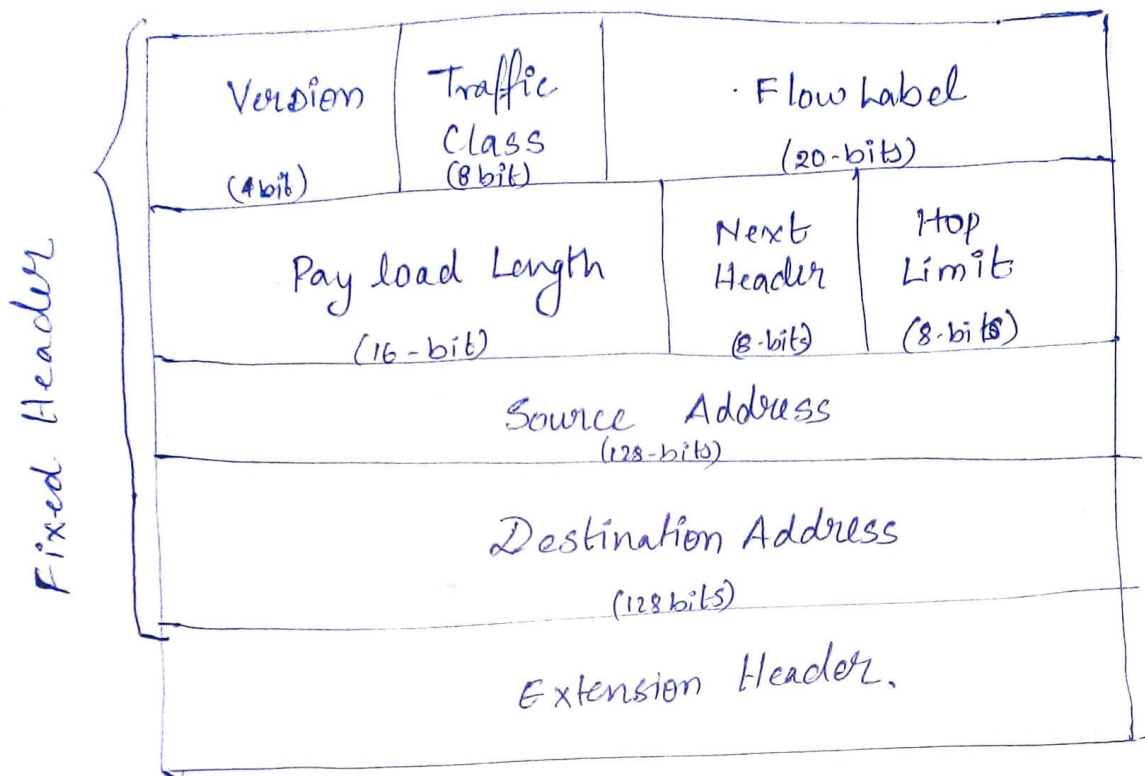 Fixed Header
Version
(4 bit)
Traffic
Class
(8 bit)
Flow Label
(20-bits)
Pay load Length
(16-bit)
Next
Header
(8-bits)
Hop
Limit
(8-bits)
Source Address
(128-bits)
Destination Address
(128 bits)
Extension Header.